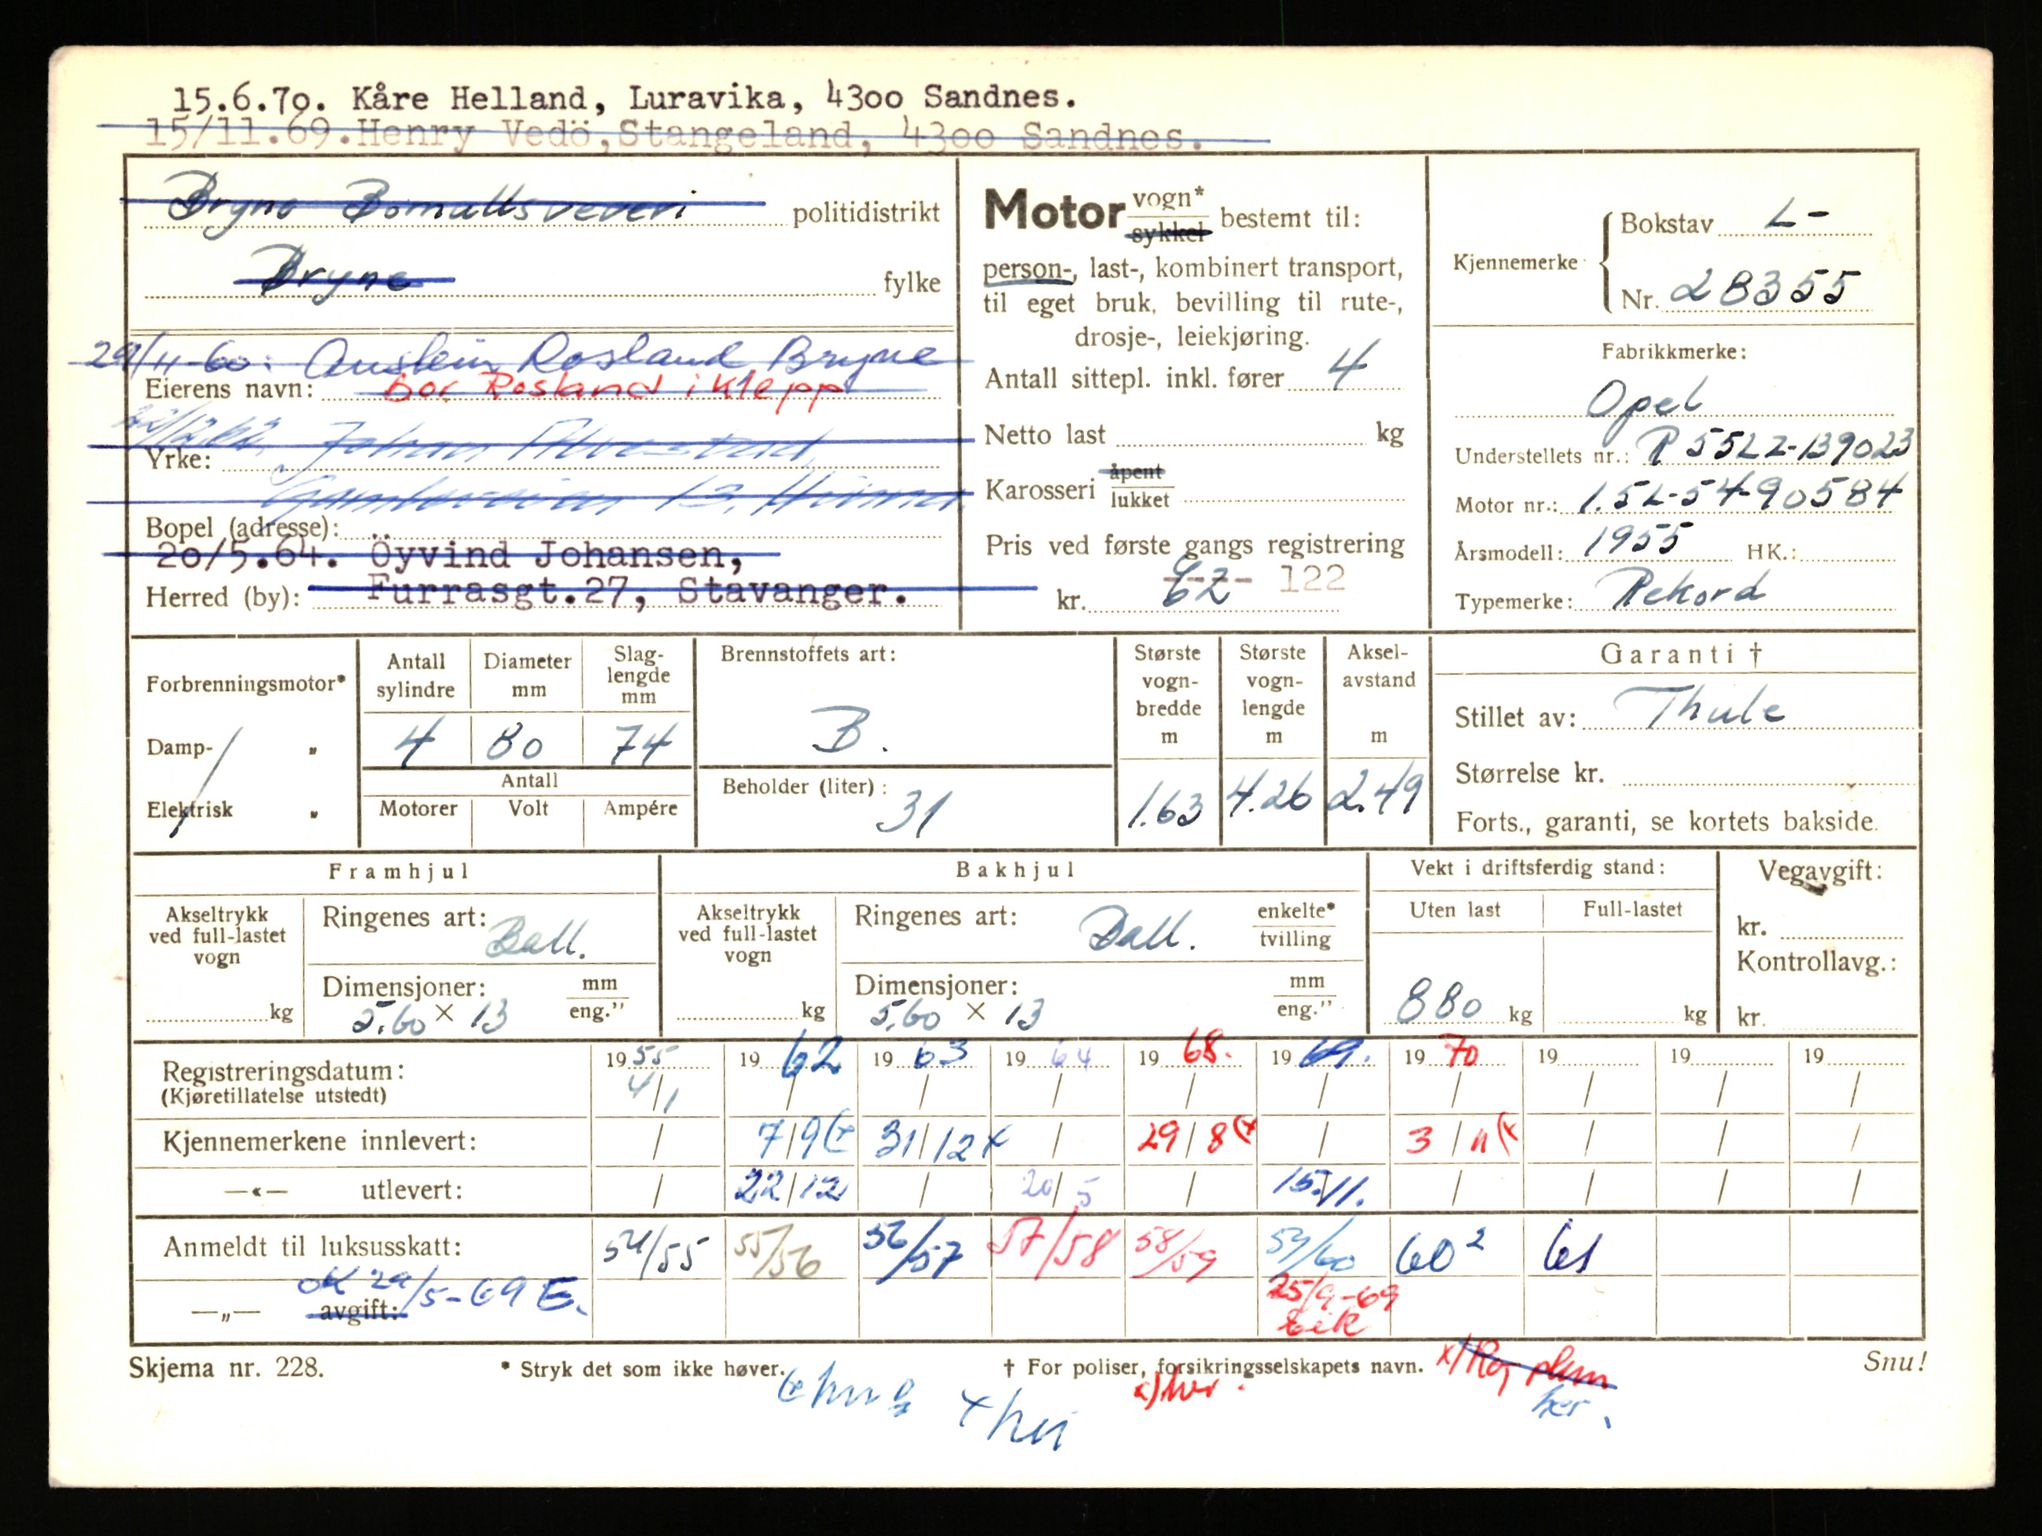 15.6.70. Kåre Helland, Luravika, 4300 Sandnes.
15/11.69.Henry Vedö,Stangeland, 4300 Sandnes.
Bryne Bomullsveveri politidistrikt
Bryne fylke
29/11-60: Austein Rosland Bryne
Eierens navn: bor Rosland i Klepp
22/12.62. Johan
Yrke:
Bopel (adresse):
20/5.64. Öyvind Johansen,
Herred (by): Furrasgt.27, Stavanger.
Motor vogn* sykkel bestemt til:
person-, last-, kombinert transport,
til eget bruk, bevilling til rute-,
drosje-, leiekjøring.
Antall sittepl. inkl. fører 4
Netto last kg
Karosseri åpent lukket
Pris ved første gangs registrering
kr. 122
Kjennemerke
Bokstav L-
Nr. 28355
Fabrikkmerke:
Opel
Understellets nr.: R 55LZ-139023
Motor nr.: 1.5L-54-90584
Årsmodell: 1955 HK.:
Typemerke: Rekord
Forbrenningsmotor*
Damp- „
Elektrisk „
Antall sylindre 4
Diameter mm 80
Slag-lengde mm 74
Antall
Motorer Volt Ampére
Brennstoffets art:
B.
Beholder (liter):
31
Største vogn-bredde m 1.63
Største vogn-lengde m 4.26
Aksel-avstand m 2.49
Garanti †
Stillet av: Thule
Størrelse kr.
Forts., garanti, se kortets bakside.
Framhjul
Akseltrykk ved full-lastet vogn
kg
Ringenes art: Ball.
Dimensjoner: mm eng."
5.60 × 13
Bakhjul
Akseltrykk ved full-lastet vogn
kg
Ringenes art: Ball. enkelte* tvilling
Dimensjoner: mm eng."
5.60 × 13
Vekt i driftsferdig stand:
Uten last Full-lastet
880 kg kg
Vegavgift:
kr.
Kontrollavg.:
kr.
19 55 19 62 19 63 19 64 19 68. 19 69. 19 70 19 19 19
Registreringsdatum: 4/1 / / / / / / / / /
(Kjøretillatelse utstedt)
Kjennemerkene innlevert: / 7/9(x 31/12x / 29/8(x / 3/11(x / / /
—«— utlevert: / 22/12 / 20/5 / 15./11. / / / /
Anmeldt til luksusskatt: 54/55 55/56 56/57 57/58 58/59 59/60 60² 61
OK 29/5-69 E.
—„— avgift: 25/9-69
Skjema nr. 228. * Stryk det som ikke høver. † For poliser, forsikringsselskapets navn. Snu!
x)her.
her.